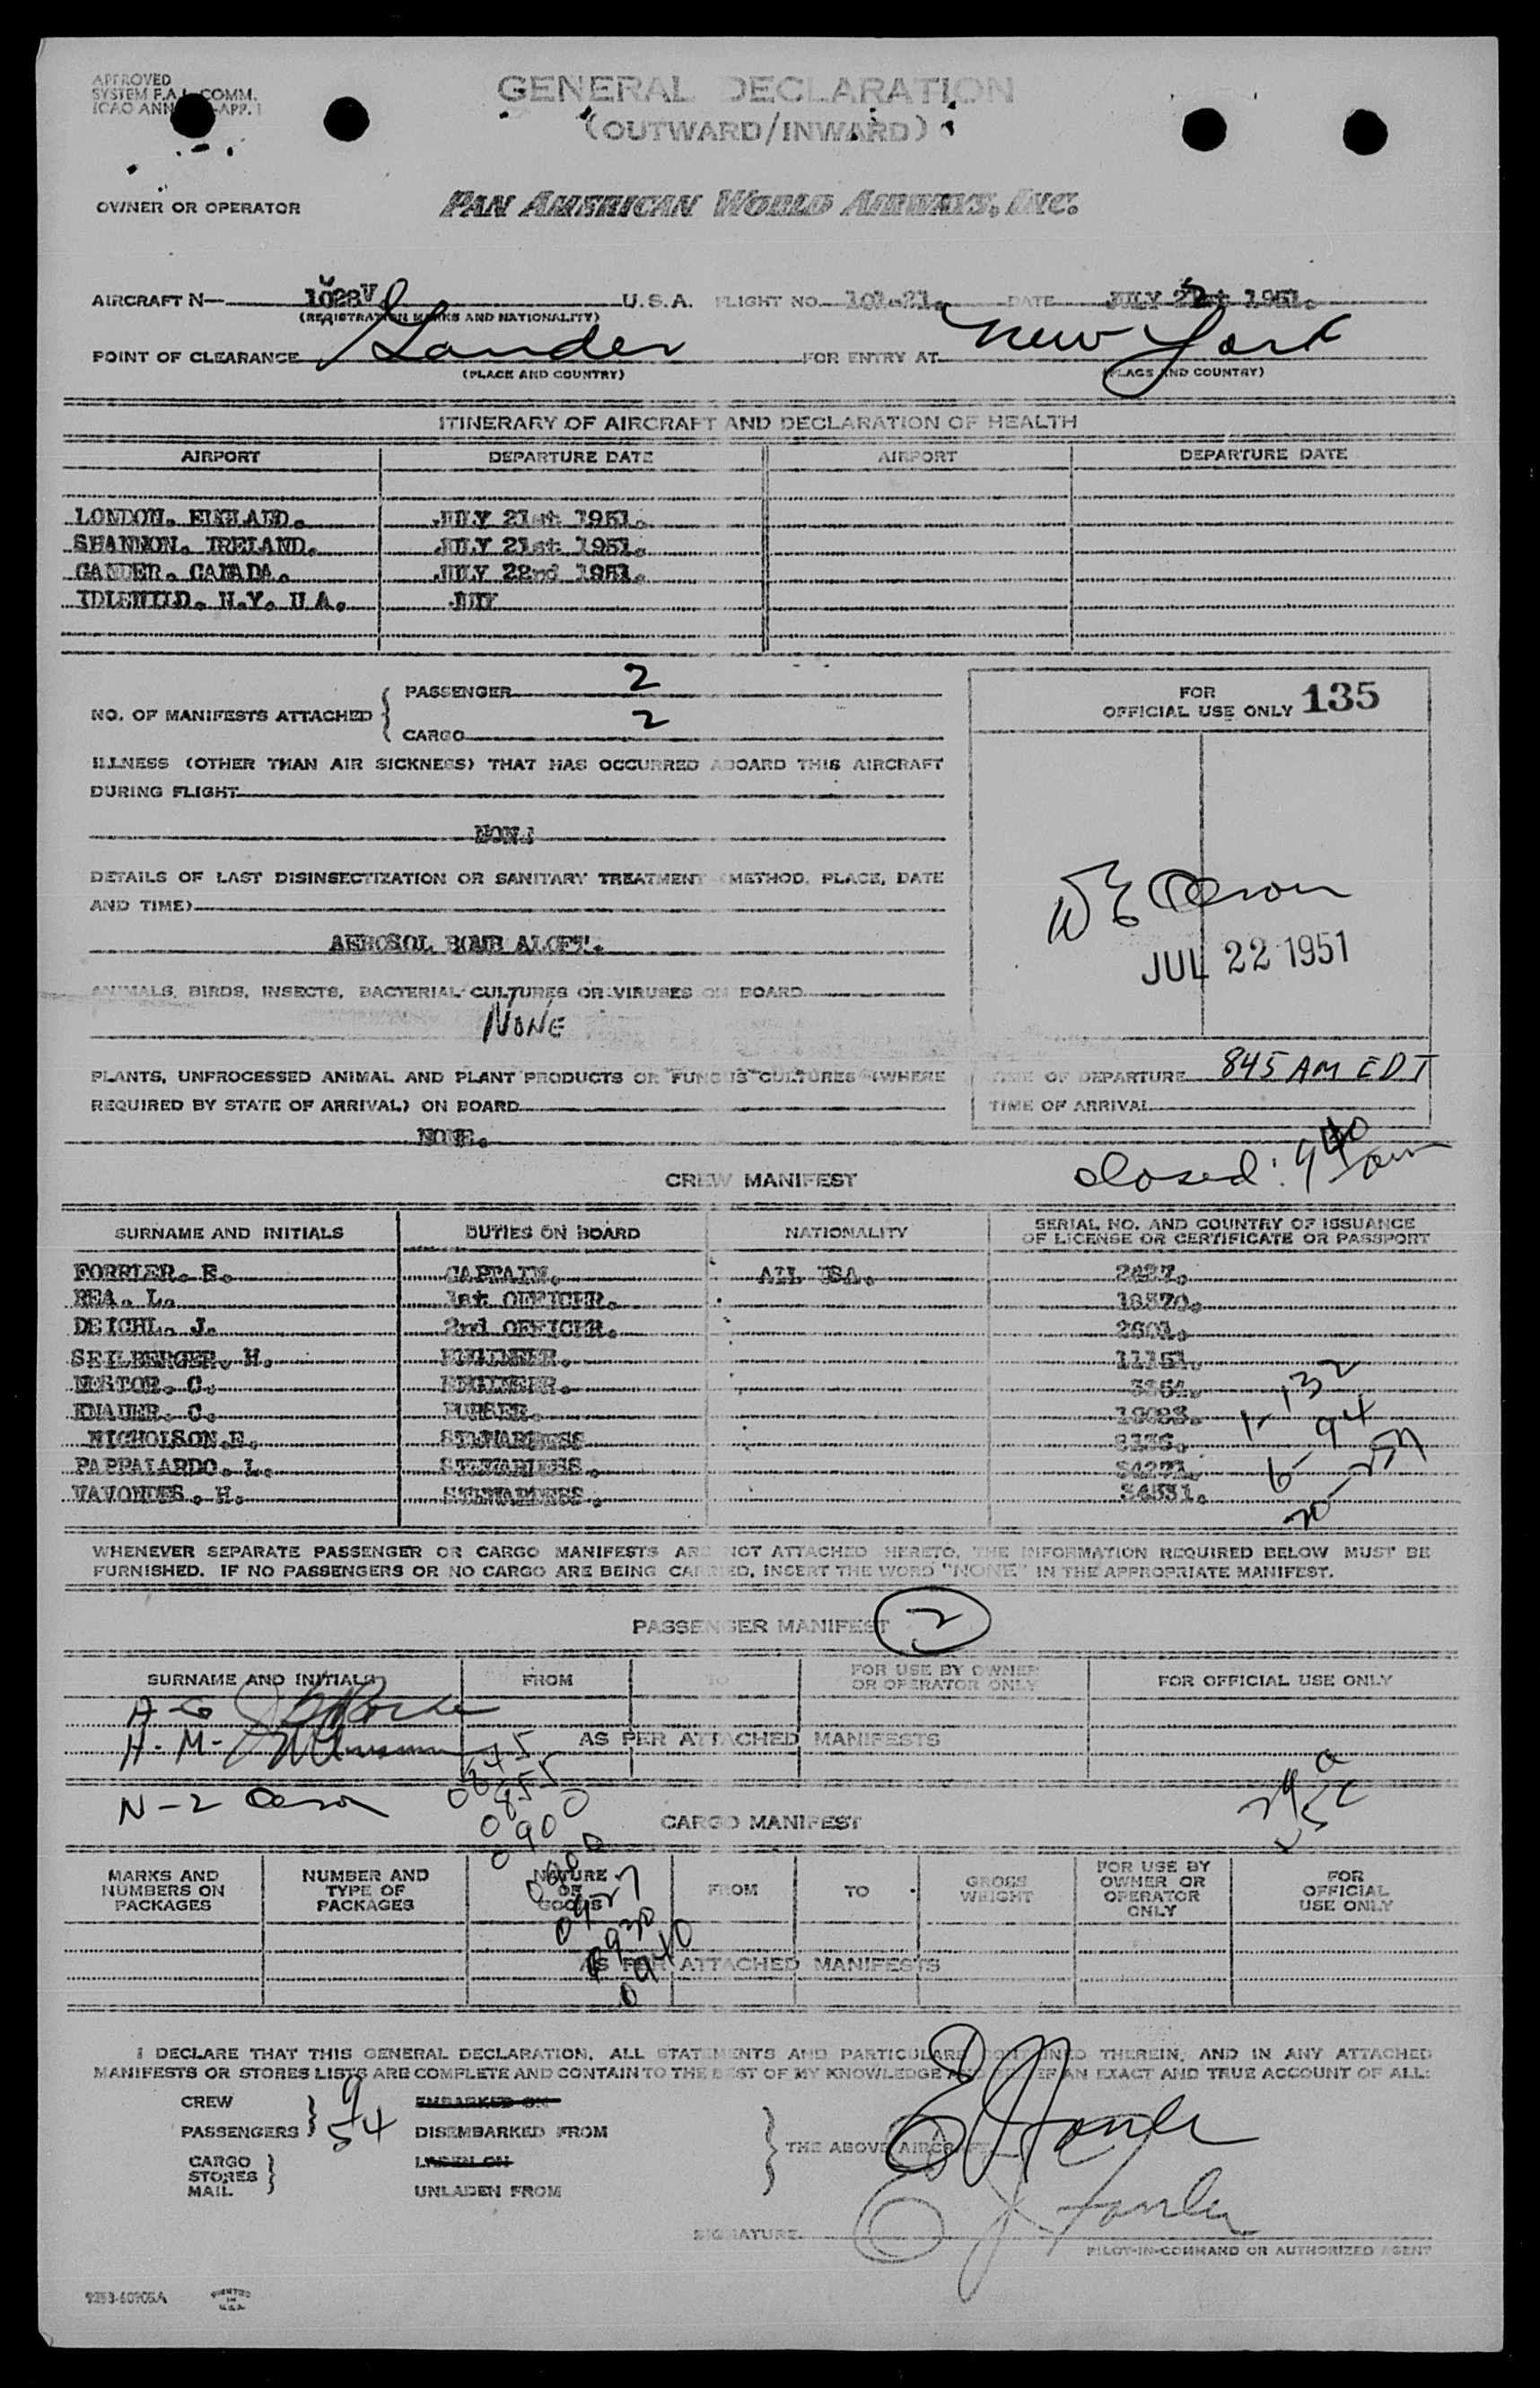 APPROVED
SYSTEM F.A.L. COMM.
ICAO ANN APP. 1
GENERAL DECLARATION
(OUTWARD/INWARD)
OWNER OR OPERATOR PAN AMERICAN WORLD AIRWAYS, INC.
AIRCRAFT N— 1028V U.S.A. FLIGHT NO. 101-21. DATE JULY 22 1951.
(REGISTRATION MARKS AND NATIONALITY)
POINT OF CLEARANCE Gander FOR ENTRY AT New York
(PLACE AND COUNTRY) (PLACE AND COUNTRY)
ITINERARY OF AIRCRAFT AND DECLARATION OF HEALTH
AIRPORT DEPARTURE DATE AIRPORT DEPARTURE DATE
LONDON. ENGLAND. JULY 21st 1951.
SHANNON. IRELAND. JULY 21st 1951.
GANDER. CANADA. JULY 22nd 1951.
IDLEWILD. N.Y. U A. JULY
NO. OF MANIFESTS ATTACHED { PASSENGER 2
CARGO 2
FOR OFFICIAL USE ONLY 135
ILLNESS (OTHER THAN AIR SICKNESS) THAT HAS OCCURRED ABOARD THIS AIRCRAFT
DURING FLIGHT
NONE
DETAILS OF LAST DISINSECTIZATION OR SANITARY TREATMENT (METHOD, PLACE, DATE
AND TIME)
AEROSOL BOMB ALOFT.
JUL 22 1951
ANIMALS, BIRDS, INSECTS, BACTERIAL CULTURES OR VIRUSES ON BOARD
NONE
PLANTS, UNPROCESSED ANIMAL AND PLANT PRODUCTS OR FUNGUS CULTURES (WHERE
REQUIRED BY STATE OF ARRIVAL) ON BOARD
NONE.
TIME OF DEPARTURE 845 AM EDT
TIME OF ARRIVAL
closed: 9 40 am
CREW MANIFEST
SURNAME AND INITIALS DUTIES ON BOARD NATIONALITY SERIAL NO. AND COUNTRY OF ISSUANCE
OF LICENSE OR CERTIFICATE OR PASSPORT
E. CAPTAIN. ALL USA.
REA. L. 1st OFFICER. 18570.
DEICHL. J. 2nd OFFICER. 2601.
SEILBERGER. H. ENGINEER. 11151.
C. ENGINEER.
KNAUER. C. PURSER.
NICHOLSON.E. STEWARDESS
PAPPALARDO. L. STEWARDESS. 34271.
H. STEWARDESS. 34531.
WHENEVER SEPARATE PASSENGER OR CARGO MANIFESTS ARE NOT ATTACHED HERETO, THE INFORMATION REQUIRED BELOW MUST BE
FURNISHED. IF NO PASSENGERS OR NO CARGO ARE BEING CARRIED, INSERT THE WORD "NONE" IN THE APPROPRIATE MANIFEST.
PASSENGER MANIFEST 2
SURNAME AND INITIALS FROM TO FOR USE BY OWNER
OR OPERATOR ONLY FOR OFFICIAL USE ONLY
AS PER ATTACHED MANIFESTS
0845
855
0900
CARGO MANIFEST
MARKS AND
NUMBERS ON
PACKAGES
NUMBER AND
TYPE OF
PACKAGES
NATURE
OF
GOODS
FROM
TO
GROSS
WEIGHT
FOR USE BY
OWNER OR
OPERATOR
ONLY
FOR
OFFICIAL
USE ONLY
0927
0930
0940
AS PER ATTACHED MANIFESTS
I DECLARE THAT THIS GENERAL DECLARATION, ALL STATEMENTS AND PARTICULARS CONTAINED THEREIN, AND IN ANY ATTACHED
MANIFESTS OR STORES LISTS ARE COMPLETE AND CONTAIN TO THE BEST OF MY KNOWLEDGE AND BELIEF AN EXACT AND TRUE ACCOUNT OF ALL:
CREW 9 EMBARKED ON
PASSENGERS 54 DISEMBARKED FROM
THE ABOVE AIRCRAFT
CARGO LADEN ON
STORES
MAIL UNLADEN FROM
SIGNATURE
PILOT-IN-COMMAND OR AUTHORIZED AGENT
PRINTED
IN
U.S.A.